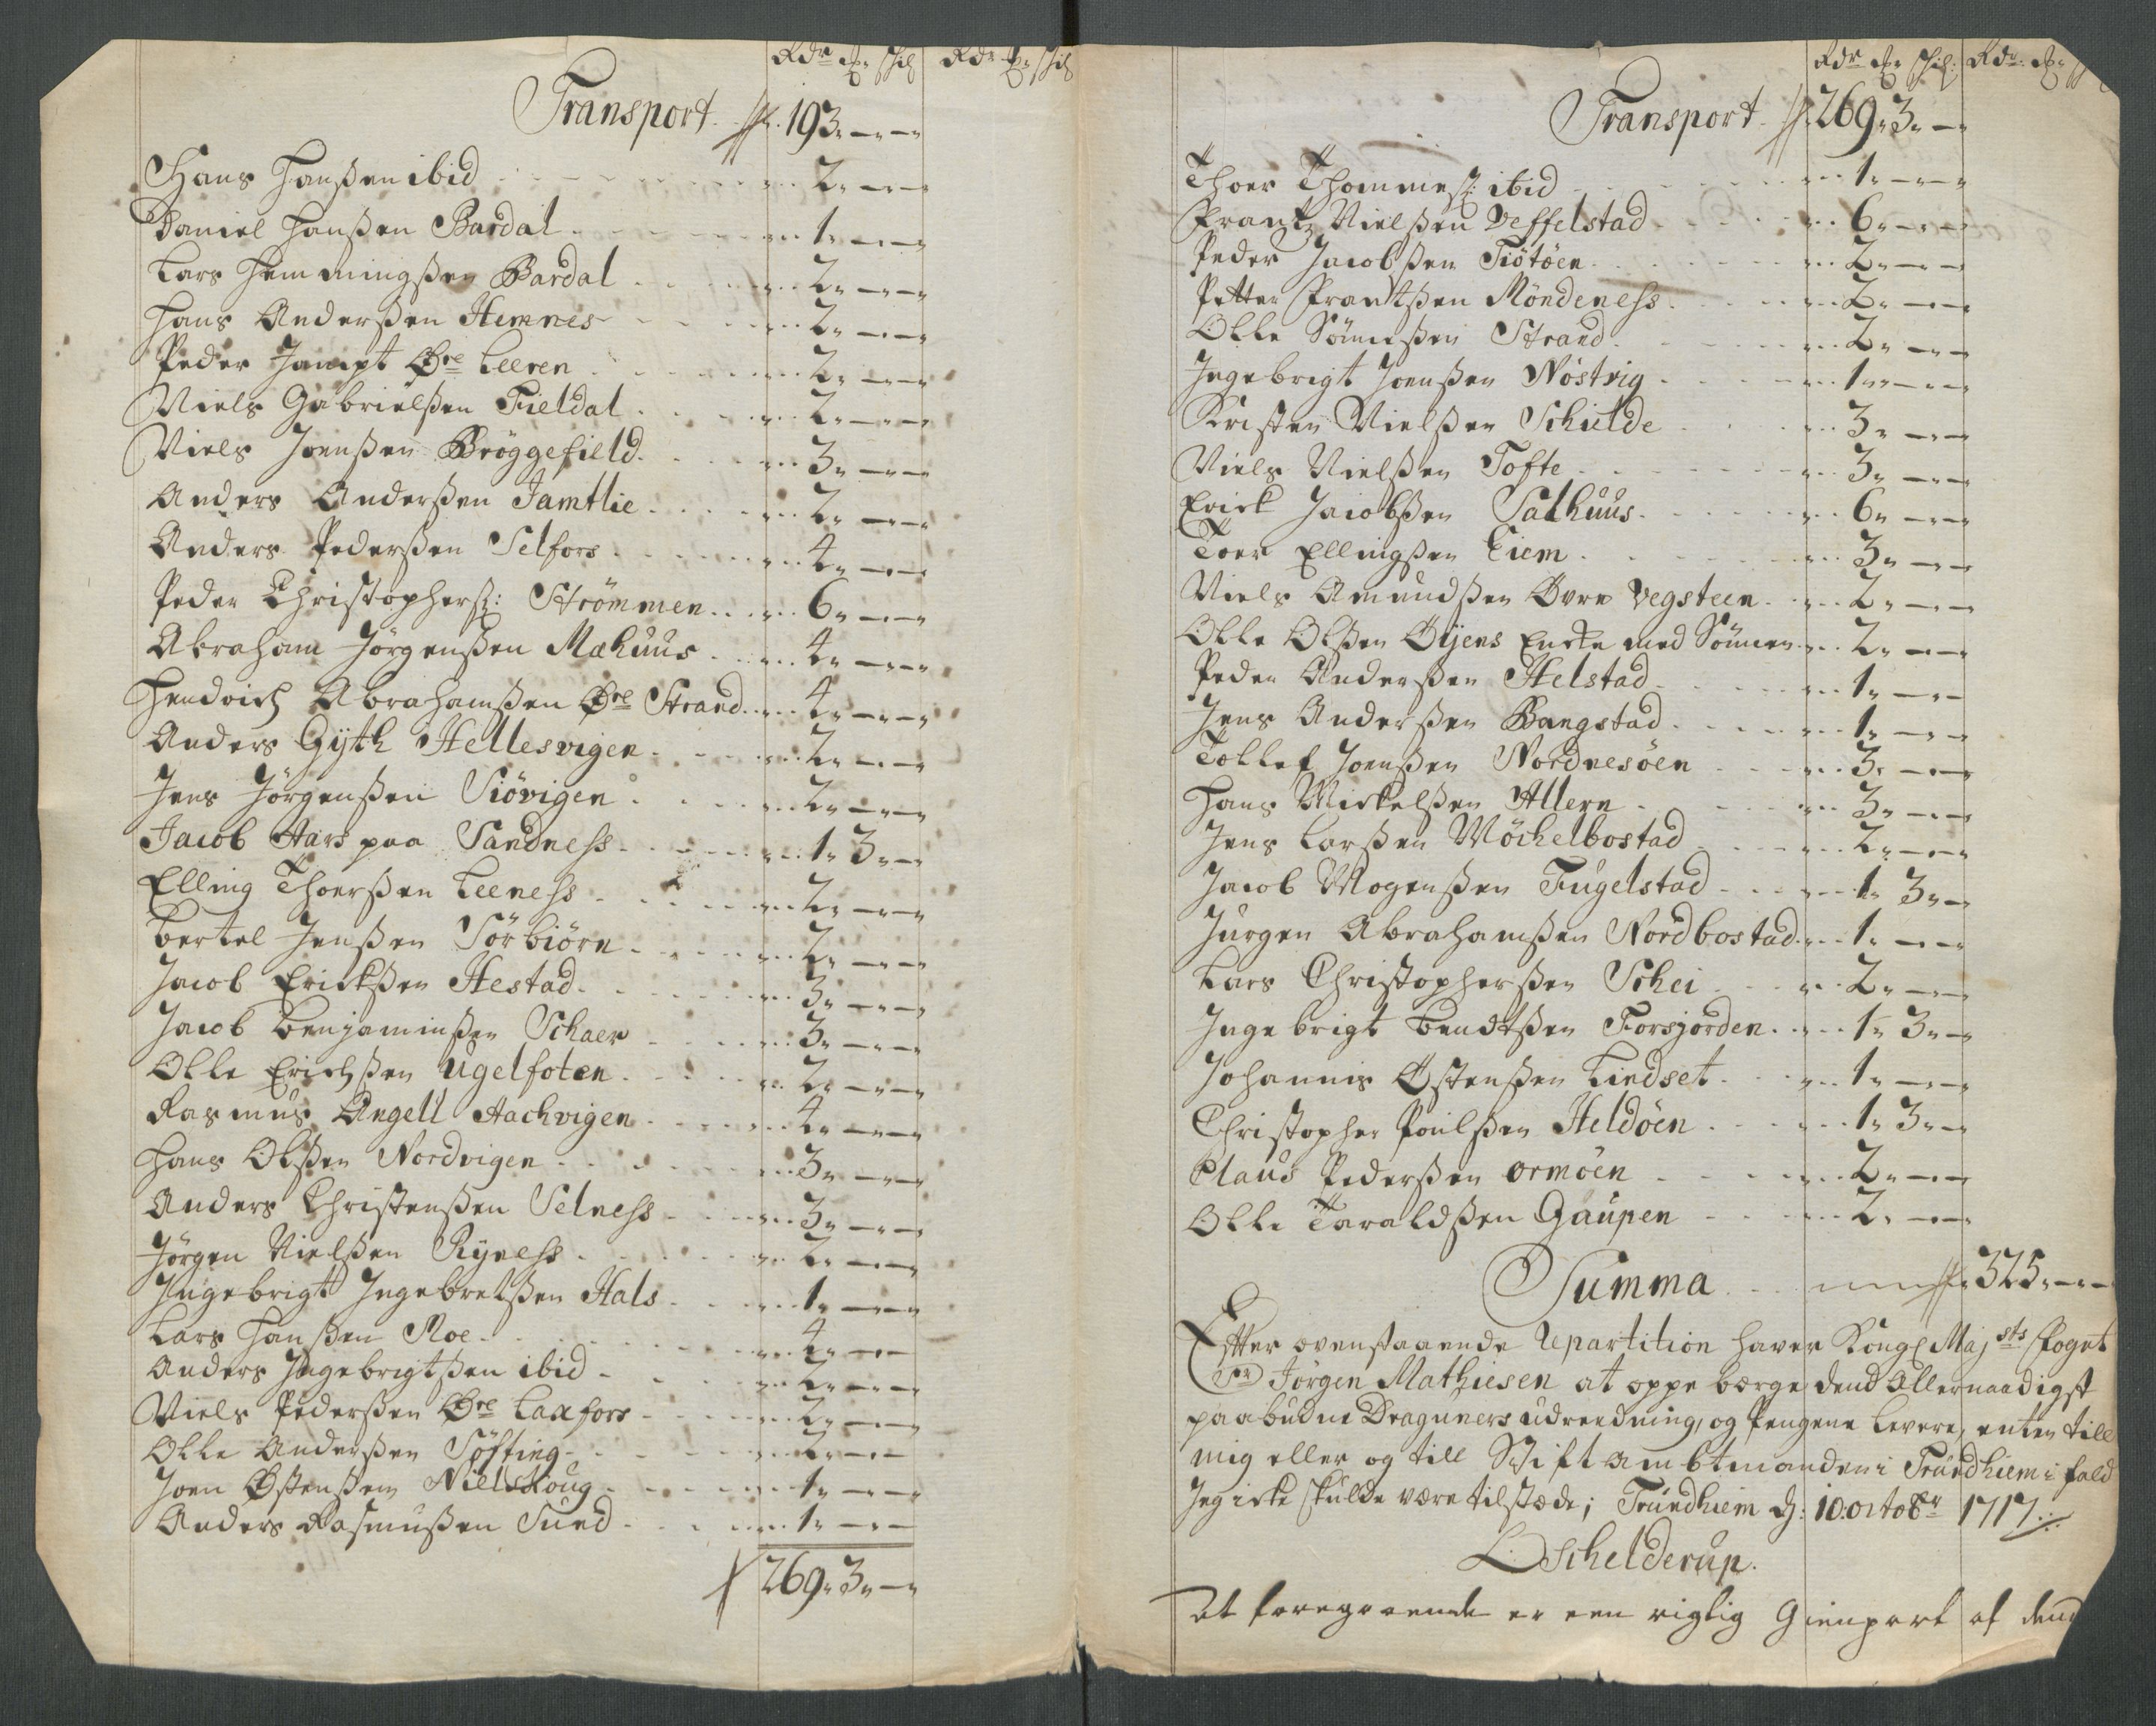 Rdr ℔ schil Rdr ℔ schil
Transport 193 „ — „ — „
Hans Hanßen ibid 2 „ — „ — „
Daniel Hanßen Bardal 1 „ — „ — „
Lars Hemmingßen Bardal 2 „ — „ — „
Hans Anderßen Hemnes 2 „ — „ — „
Peder Jampt Øre Leeren 2 „ — „ — „
Niels Gabrielßen Fieldal 2 „ — „ — „
Niels Joenßen Bröggefield 3 „ — „ — „
Anders Anderßen Jamtlie 2 „ — „ — „
Anders Pederßen Selfors 4 „ — „ — „
Peder Christophers: Strömmen 6 „ — „ — „
Abraham Jörgenßen Mæhuus 4 „ — „ — „
Hendrich Abrahamßen Øre Strand 4 „ — „ — „
Anders Gÿth Hellesvigen 2 „ — „ — „
Jens Jörgenßen Siövigen 2 „ — „ — „
Jacob Aars paa Sandness 1 „ 3 „ — „
Elling Thoerßen Leeness 2 „ — „ — „
Bertel Jenßen Sörbiörn 2 „ — „ — „
Jacob Erickßen Hestad 3 „ — „ — „
Jacob Benjaminßen Schaer 3 „ — „ — „
Olle Erichßen Ugelfoten 2 „ — „ — „
Rasmus Angell Aachvigen 4 „ — „ — „
Hans Olßen Nordvigen 3 „ — „ — „
Anders Christenßen Selness 3 „ — „ — „
Jörgen Nielßen Rÿness 2 „ — „ — „
Ingebrigt Ingebretßen Hals 1 „ — „ — „
Lars Hanßen Moe 4 „ — „ — „
Anders Ingebrigtßen ibid 2 „ — „ — „
Niels Pederßen Øre Laxfors 2 „ — „ — „
Olle Anderßen Söfting 2 „ — „ — „
Joen Østenßen Nielskoug 1 „ — „ — „
Anders Rasmußen Sund 1 „ — „ — „
269 „ 3 „ — „
Rdr ℔ schil: Rdr: ℔
Transport 269 „ 3 „ — „
Thoer Thommes: ibid 1 „ — „ — „
Frantz Nielßen Veffelstad 6 „ — „ — „
Peder Jacobßen Tiötöen 2 „ — „ — „
Petter Frantßen Möndeness 2 „ — „ — „
Olle Sönnißen Strand 2 „ — „ — „
Ingebrigt Joenßen Nöstvig 1 „ — „ — „
Kristen Nielßen Schielde 3 „ — „ — „
Niels Nielßen Tofte 3 „ — „ — „
Erick Jacobßen Salhuus 6 „ — „ — „
Toer Ellingßen Eiem 3 „ — „ — „
Niels Amundßen Øvre Vegsteen 2 „ — „ — „
Olle Olßen Øÿens Encke med Sönnen 2 „ — „ — „
Peder Anderßen Helstad 1 „ — „ — „
Jens Anderßen Bangstad 1 „ — „ — „
Tollef Joenßen Nordnesöen 3 „ — „ — „
Hans Mickelßen Allern 3 „ — „ — „
Jens Larßen Möchelbostad 2 „ — „ — „
Jacob Mogenßen Fugelstad 1 „ 3 „ — „
Jurgen Abrahamßen Nordbostad 1 „ — „ — „
Lars Christopherßen Schei 2 „ — „ — „
Ingebrigt Bendtßen Forsjorden 1 „ 3 „ — „
Johannis Østenßen Lindset 1 „ — „ — „
Christopher Poulßen Heldöen 1 „ 3 „ — „
Claus Pederßen ormöen 2 „ — „ — „
Olle Taraldßen Gaupen 2 „ — „ — „
Summa 325 „ — „ —
Efter ovenstaaende Repartition haver Kongl Majsts Foget
Sr Jörgen Mathiesen at oppebærge dend Allernaadigst
paabudne Draguners udreedning, og Pengene levere, enten till
mig eller og till Stiftambtmanden i Trundhiem i fald
Jeg icke skulde være tilstæde; Trundhiem d: 10: octobr 1717
Schelderup.
At foregaaende er een rigtig Gienpart af dend